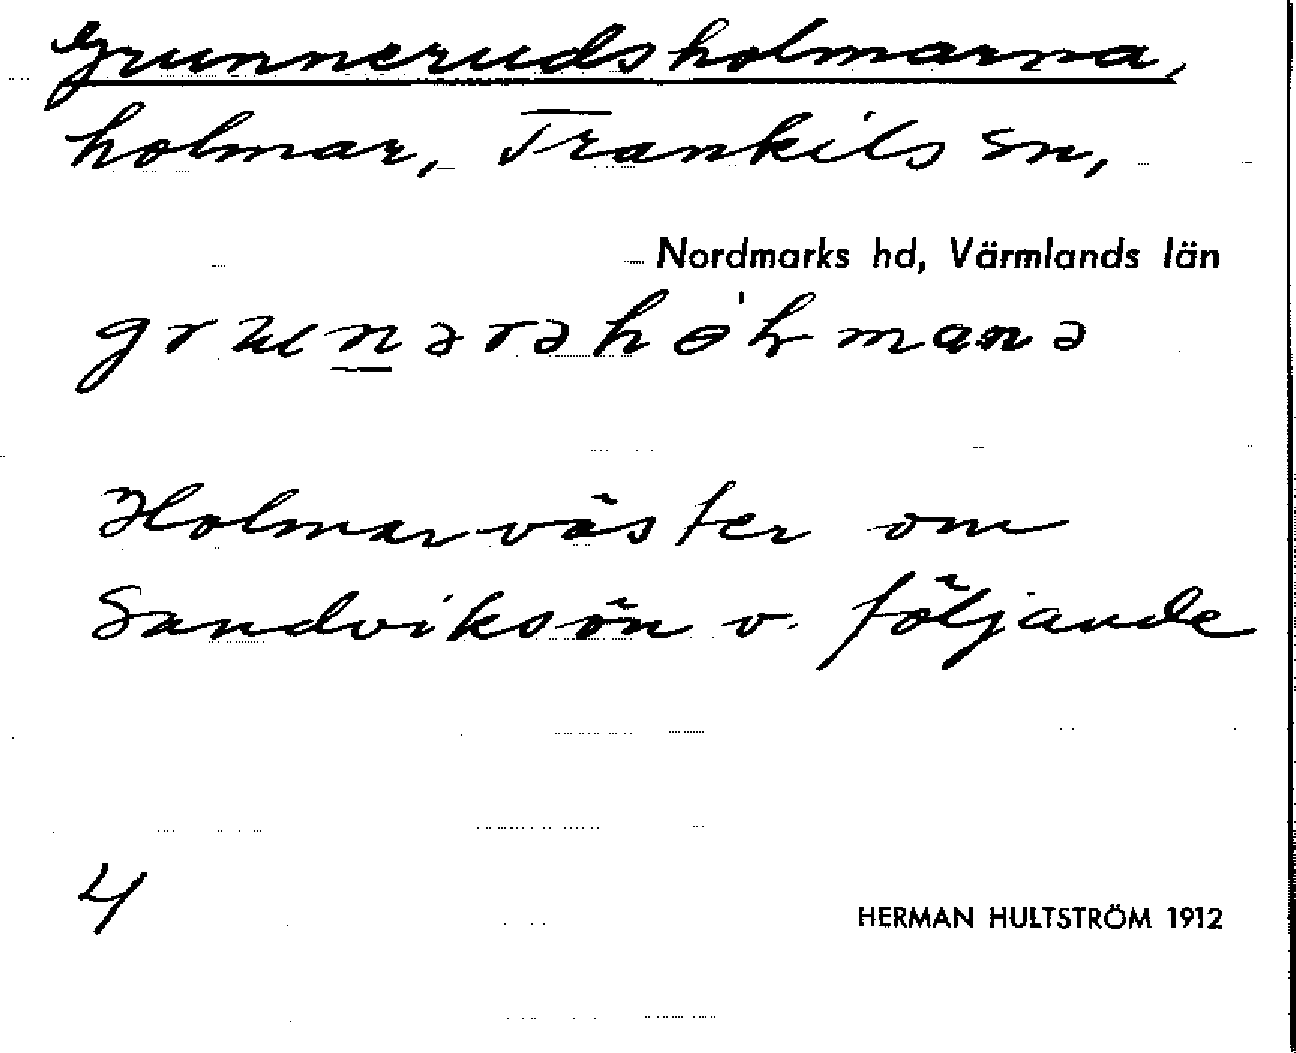 Grunnerudsholmarna,
holmar, Trankils sn,
Nordmarks hd, Värmlands län
Holmar väster om
Sandviksön v. följande
4
HERMAN HULTSTRÖM 1912